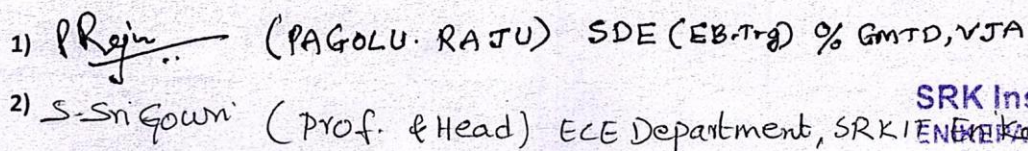 1) P Raju (PAGOLU. RAJU) SDE (EB.Trg) % GMTD, VJA
SRK Ins
2) S. Sri Gowri (Prof. & Head) ECE Department, SRKIT